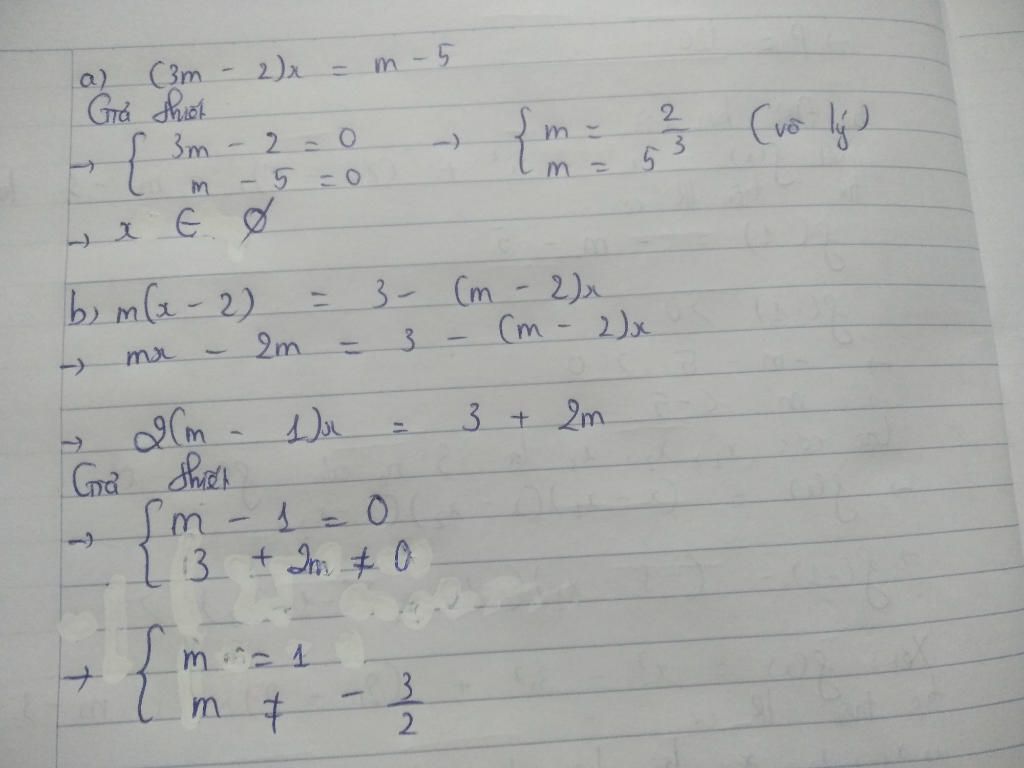 a) (3m - 2)x = m - 5
Giả thiết
→ { 3m - 2 = 0 → { m = 2/3 (vô lý)
m - 5 = 0 m = 5
→ x ∈ ∅
b) m(x - 2) = 3 - (m - 2)x
→ mx - 2m = 3 - (m - 2)x
→ 2(m - 1)x = 3 + 2m
Giả thiết
→ { m - 1 = 0
3 + 2m ≠ 0
→ { m = 1
m ≠ - 3/2